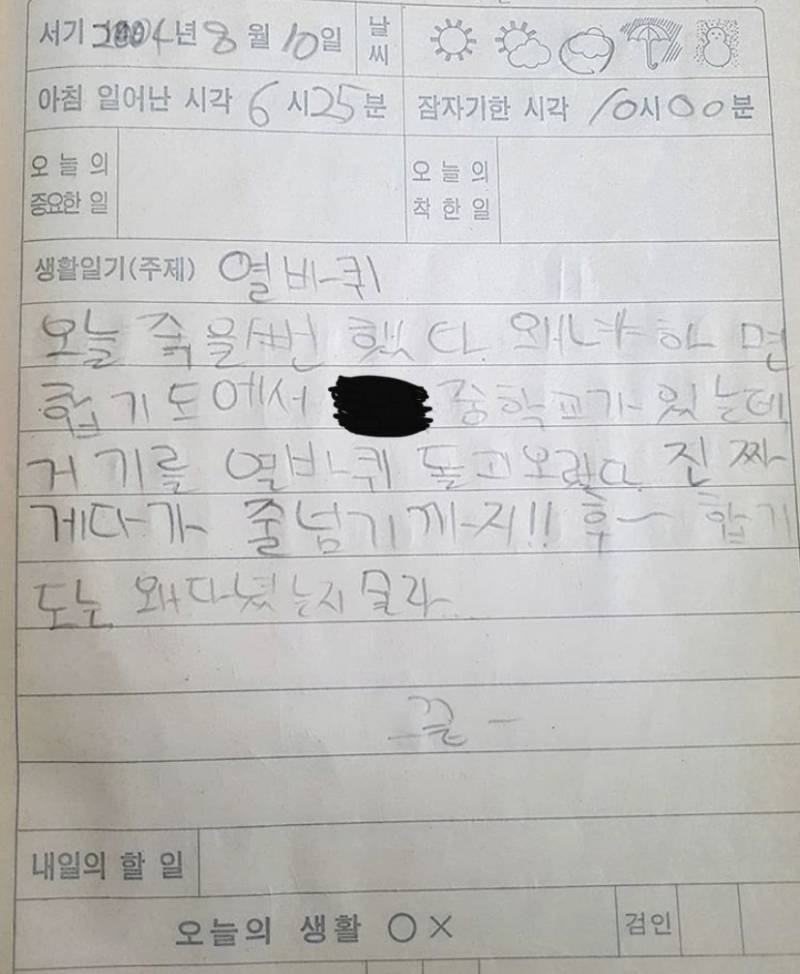 서기 2004년 8월 10일 날씨
아침 일어난 시각 6시25분 잠자기한 시각 10시00분
오늘의 중요한 일 오늘의 착한 일
생활일기(주제) 열바퀴
오늘 죽을뻔 했다. 왜냐하면
합기도에서 중학교가 있는데
거기를 열바퀴 돌고오랬다. 진짜
게다가 줄넘기까지!! 후~ 합기
도는 왜다녔는지 몰라..
끝-
내일의 할 일
오늘의 생활 ○× 검인